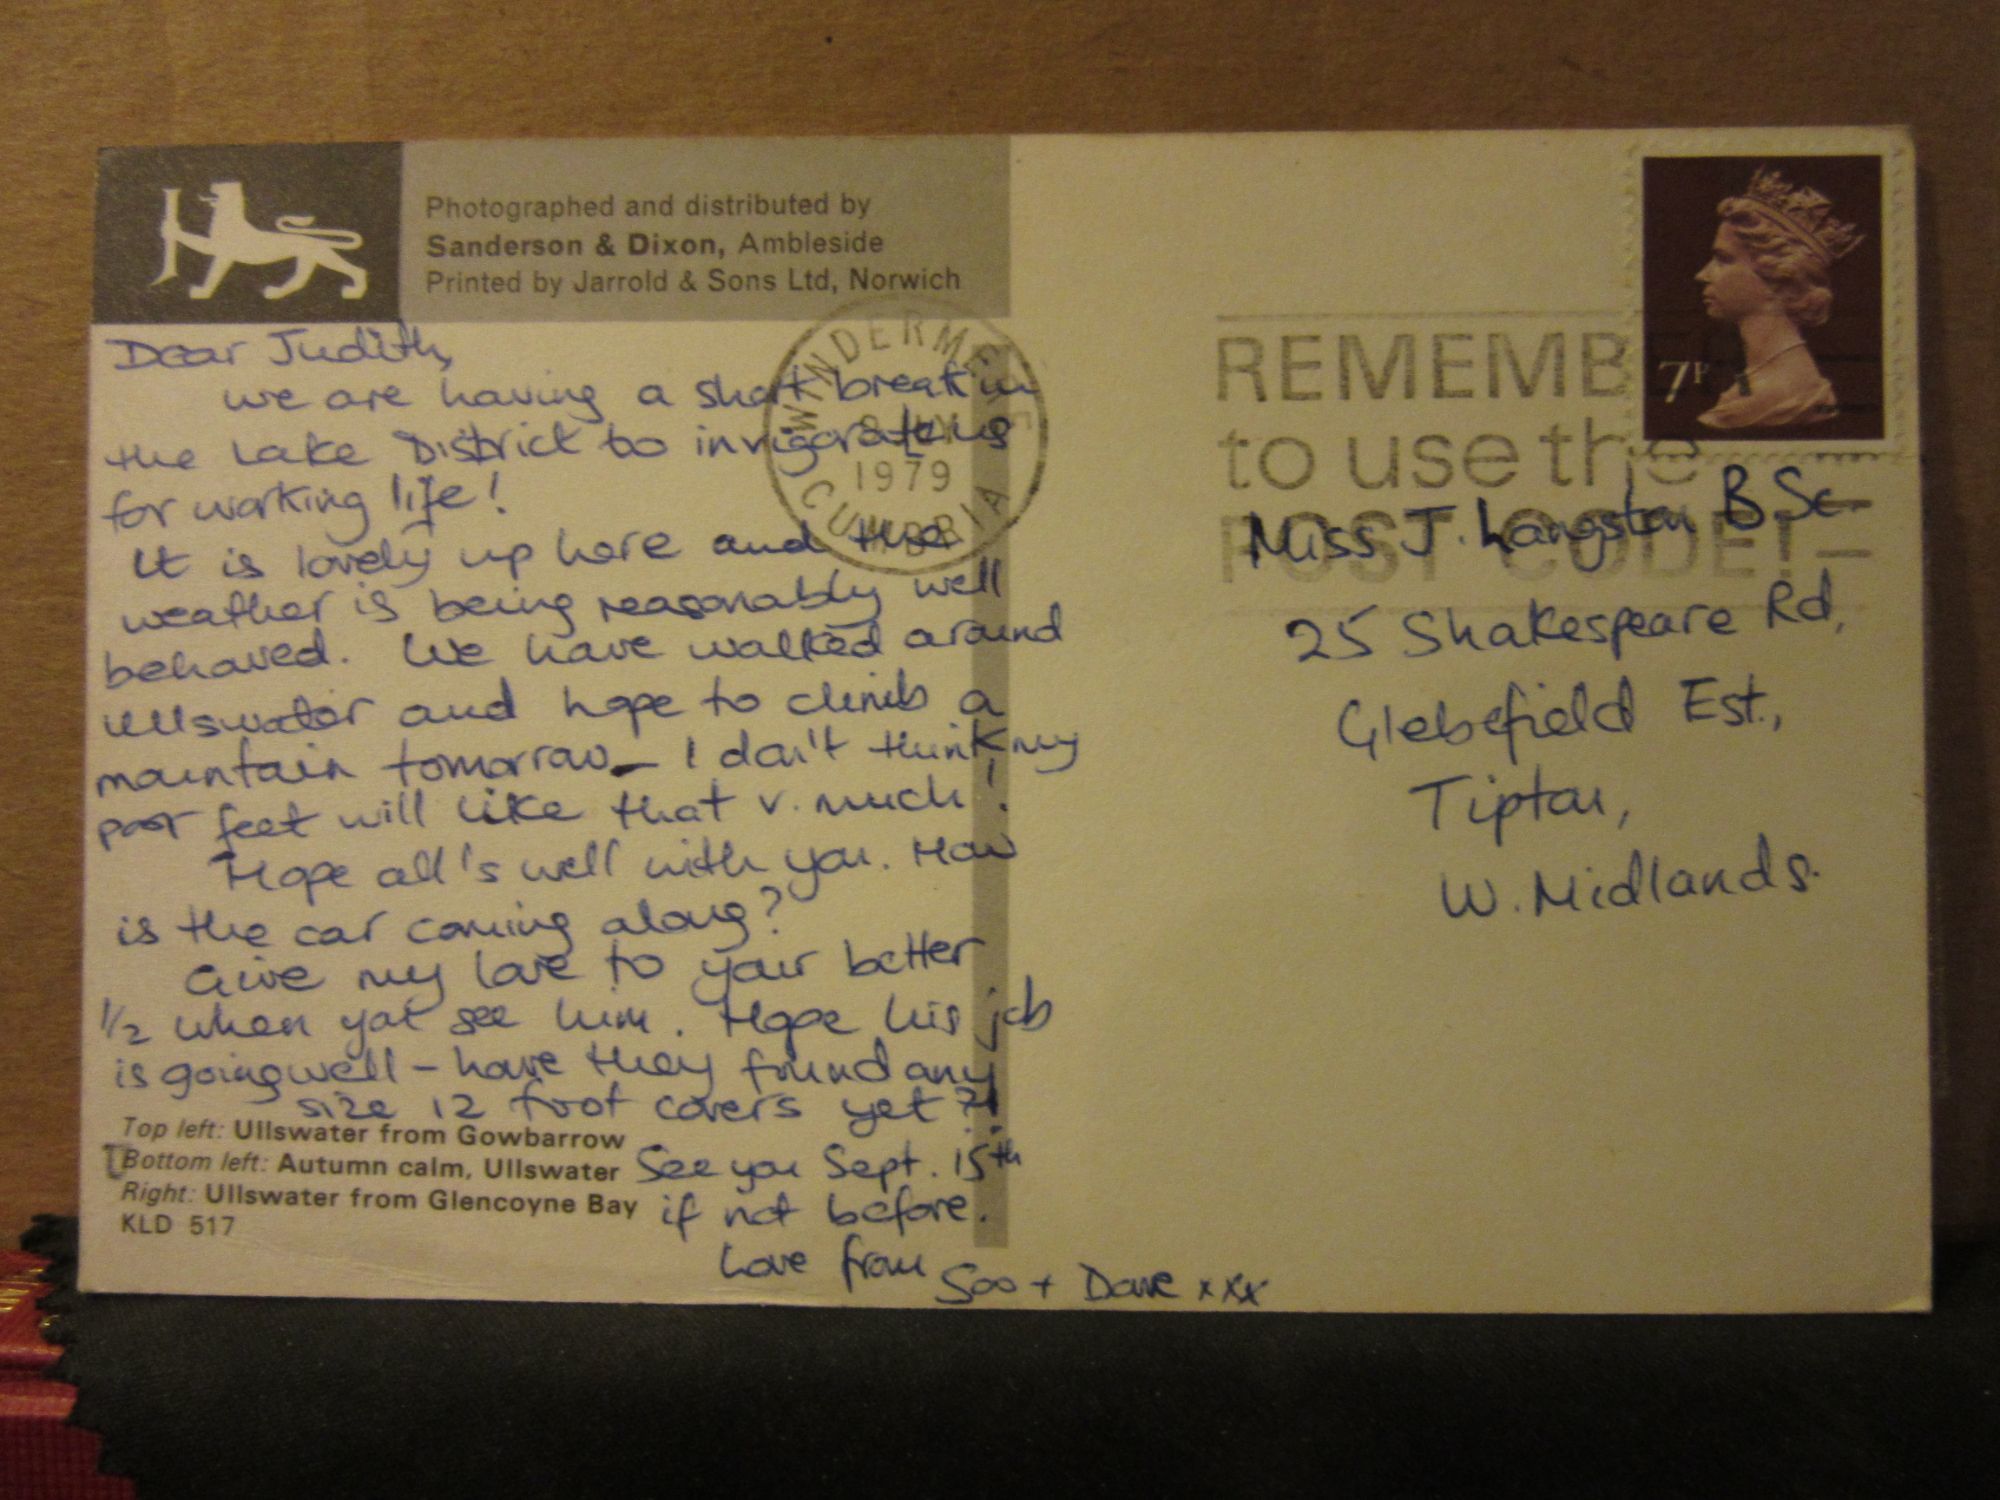 Photographed and distributed by
Sanderson & Dixon, Ambleside
Printed by Jarrold & Sons Ltd, Norwich
Dear Judith,
we are having a short break in
the Lake District to invigorate us
for working life!
It is lovely up here and the
weather is being reasonably well
behaved. We have walked around
Ullswater and hope to climb a
mountain tomorrow - I don't think my
poor feet will like that v. much!
Hope all's well with you. How
is the car coming along?
Give my love to your better
1/2 when you see him. Hope his job
is going well - have they found any
size 12 foot covers yet?!
See you Sept. 15th
if not before.
Love from Soo + Dave xxx
Top left: Ullswater from Gowbarrow
Bottom left: Autumn calm, Ullswater
Right: Ullswater from Glencoyne Bay
KLD 517
WINDERMERE
1979
CUMBRIA
REMEMBER
to use the
POST CODE!
7P
Miss J. Langston B.Sc.
25 Shakespeare Rd,
Glebefield Est.,
Tipton,
W. Midlands.